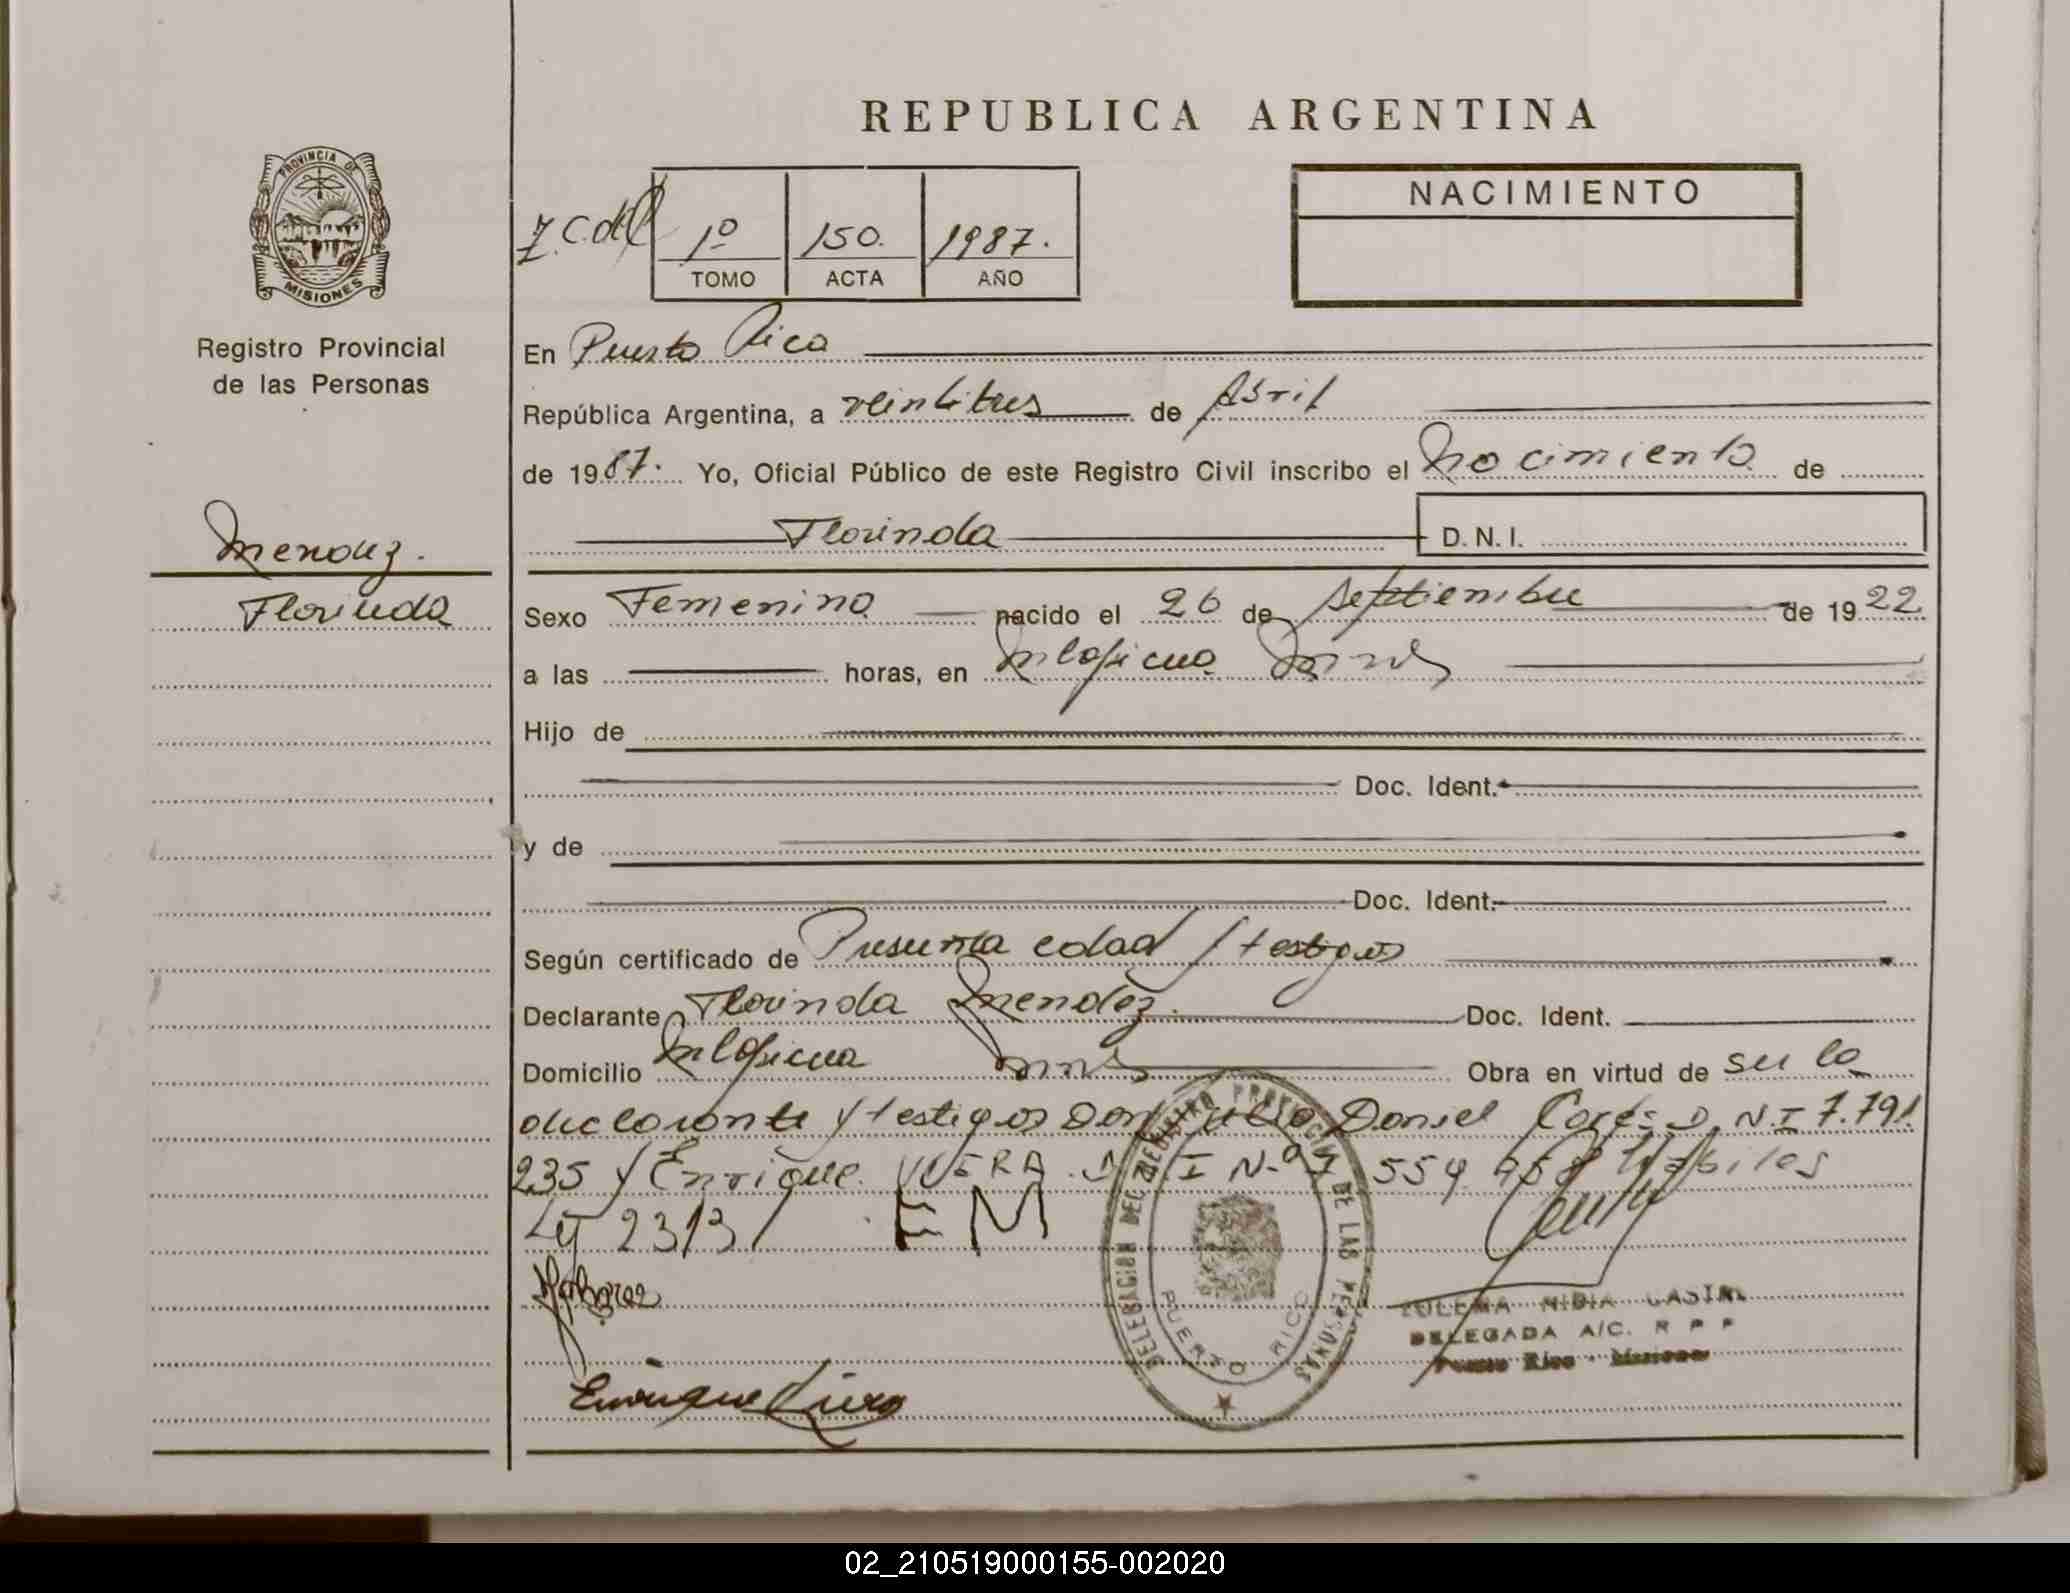 REPUBLICA ARGENTINA
PROVINCIA DE
MISIONES
Registro Provincial
de las Personas
1º 150. 1987.
TOMO ACTA AÑO
NACIMIENTO
En Puerto Rico
República Argentina, a veintitres de Abril
de 1987. Yo, Oficial Público de este Registro Civil inscribo el Nacimiento de
Florinda D.N.I.
Mendez.
Florinda
Sexo Femenino nacido el 26 de Septiembre de 1922
a las horas, en
Hijo de
Doc. Ident.
y de
Doc. Ident.
Según certificado de Presunta edad y testigos
Declarante Florinda Mendez. Doc. Ident.
Domicilio Obra en virtud de ser la
declarante y testigos Don Daniel D.N.I 7.791.
235 y Enrique Nº 554 habiles
Ley 23131 EM
DELEGACION DEL REGISTRO PROVINCIAL DE LAS PERSONAS
PUERTO RICO
ZULEMA NIDIA
DELEGADA A/C. R P P
Puerto Rico - Misiones
Enrique
02_210519000155-002020